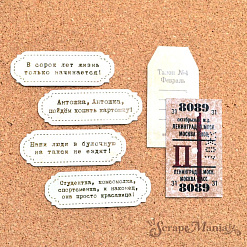 В сорок лет жизнь
только начинается!
Антошка, Антошка,
пойдём копать картошку!
Наши люди в булочную
на такси не ездят!
Студентка, комсомолка,
спортсменка, и наконец,
она просто красавица!
Талон №4
Февраль
8089
ЛЕНИНГРАД
МОСКВА
III
ЛЕНИНГРАД
МОСКВА
8089
ScrapeMania